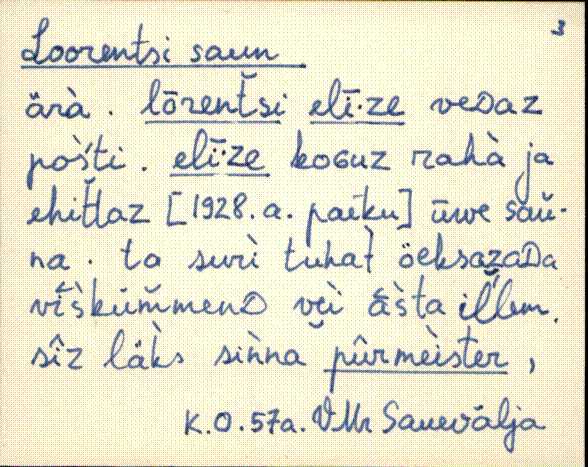 3
Loorentsi saun
ärà . lōrent̆si elī·ze veᴅaz
pòšti . elī·ze koɢuz rahà ja
ehit̆taz [1928. a. paiku] ūwe sau̬·-
na . ta surì tuhat̀ öeksazaᴅa
vīs̀kŭm̆menᴅ vei ās̀ta illem.
sîz läk̀s siǹna pûrmèister,
K.O. 57a. VMr Sauevälja